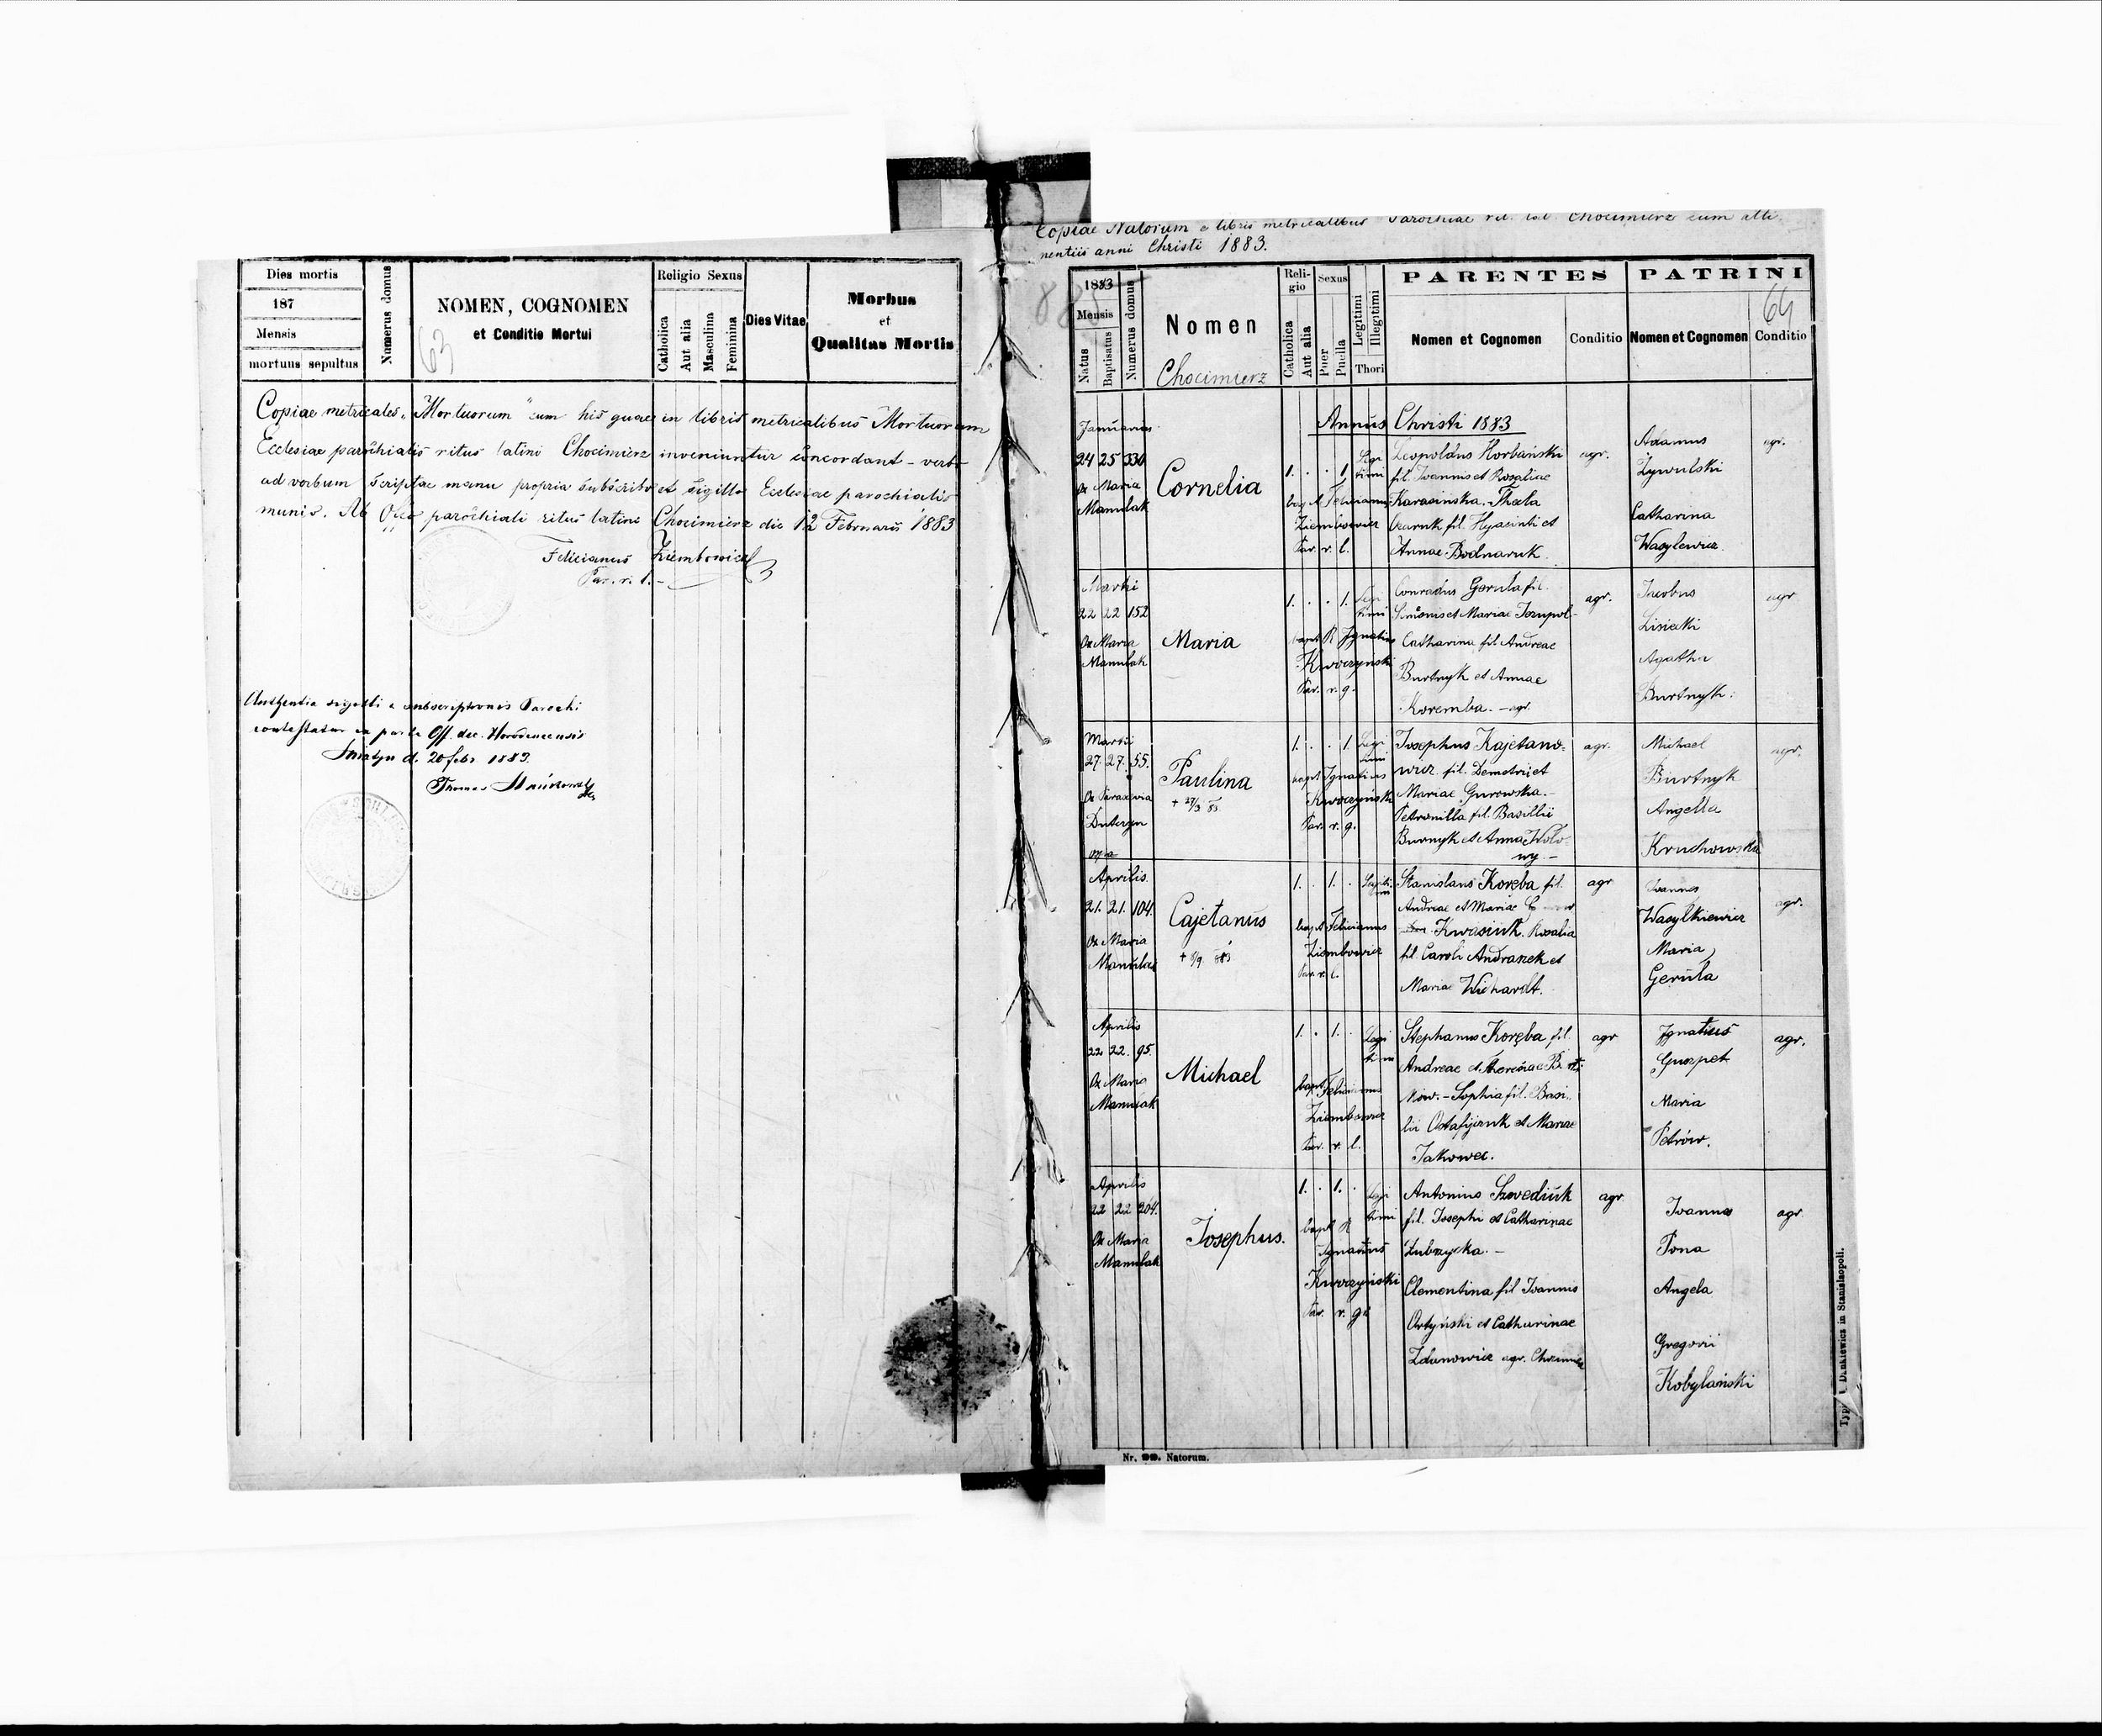 Dies mortis
187
Mensis
mortuus sepultus
Numerus domus
NOMEN, COGNOMEN
et Conditio Mortui
63
Religio Sexus
Catholica
Aut alia
Masculina
Feminina
Dies Vitae
Morbus
et
Qualitas Mortis
Copiae metricales „Mortuorum" cum his quae in libris metricalibus Mortuorum
Ecclesiae parochialis ritus latini Chocimierz inveniuntur concordant – verbo
ad verbum scriptae manu propria subscribo et sigillo Ecclesiae parochialis
munio. Ab Offo parochiali ritus latini Chocimierz die 12 Februarii 1883
Felicianus Ziembowicz
Par. r. l. –
sigilli subscriptionis Parochi
contestatur ex parte Off. dec. Horodencensis
Śniatyn d. 20 febr. 1883.
Thomas
Copiae Natorum e libris metricalibus Parochiae rit. lat. Chocimierz cum atti
nentiis anni Christi 1883.
1883
Mensis
Natus
Baptisatus
Numerus domus
Nomen
Chocimierz
Religio
Catholica
Aut alia
Sexus
Puer
Puella
Legitimi
Illegitimi
Thori
PARENTES
Nomen et Cognomen
Conditio
PATRINI
64
Nomen et Cognomen
Conditio
Annus Christi 1883
Januarius
24 25 330
Ox Maria
Manulak
Cornelia
1. . . 1. Legitimi
bapt Felicianus
Ziembowicz
Par. r. l.
Leopoldus Horbański
fil. Ioannis et Rosaliae
Karasińska. Thecla
fil. Hyacinti et
Annae Bodnaruk
agr.
Adamus
Zywulski
Catharina
Wasylewicz
agr.
Martii
22 22 152
Ox Maria
Manulak
Maria
1. . . 1. Legitimi
bapt R Ignatius
Kurczyński
Par. r. g.
Conradus Gerula fil.
Simonis et Mariae
Catharina fil. Andreae
Burtnyk et Annae
Koremba. – agr.
agr.
Jacobus
Lisiecki
Agatha
Burtnyk.
agr
Martii
27. 27. 55.
Ox Paraxevia
Paulina
+ 27/3 83
1. . . 1. Legitimi
bapt Ignatius
Kurczyński
Par. r. g.
Josephus Kajetano-
wicz fil. Demetrii et
Mariae Gurowska. –
Petronilla fil. Basilii
agr.
Michael
Burtnyk
Angella
Kruchowska
agr.
Aprilis.
21. 21. 104.
Ox Maria
Manulak
Cajetanus
1. . 1. .
bapt Felicianus
Ziembowicz
Par. r. l.
Stanislaus Koręba fil.
Andreae et Mariae
Kwasiuk. Rosalia
fil. Caroli Andraszek et
Mariae Wichardt.
agr
Ioannes
Wasylkiewicz
Maria
Gerula
agr.
Aprilis
22 22. 95.
Ox Maria
Manulak
Michael
1. . 1. . Legitimi
bapt Felicianus
Ziembowicz
Par. r. l.
Stephanus Koręba fil.
Andreae et Theresiae
– Sophia fil. Basi-
lii Ostafijczuk et Mariae
Jakowec.
agr
Ignatius
Guszpet
Maria
Petrów.
agr.
Aprilis
22 22 204.
Ox Maria
Manulak
Josephus.
1. . 1. . Legitimi
bapt R
Ignatius
Kurczyński
Par. r. g.
Antonius Szwediuk
fil. Josephi et Catharinae
Zubrzycka. –
Clementina fil Ioannis
Ortyński et Catharinae
Zdanowicz agr.
agr
Ioannes
Pona
Angela
Gregorii
Kobylański
agr
Nr. 22. Natorum.
Dankiewicz in Stanislaopoli.